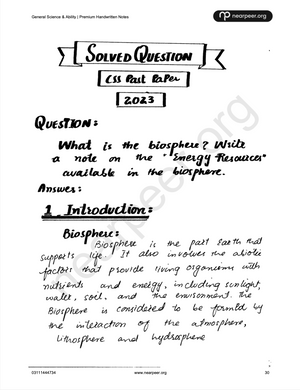 General Science & Ability | Premium Handwritten Notes
nearpeer.org
SOLVED QUESTION
CSS Past Paper
2023
QUESTION:
What is the biosphere? Write
a note on the "Energy Resources"
available in the biosphere.
Answer:
1. Introduction:
Biosphere:
Biosphere is the part Earth that
supports life. It also involves the abiotic
factors that provide living organisms with
nutrients and energy, including sunlight,
water, soil, and the environment. The
Biosphere is considered to be formed by
the interaction of the atmosphere,
lithosphere and hydrosphere
03111444734
www.nearpeer.org
30
nearpeer.org